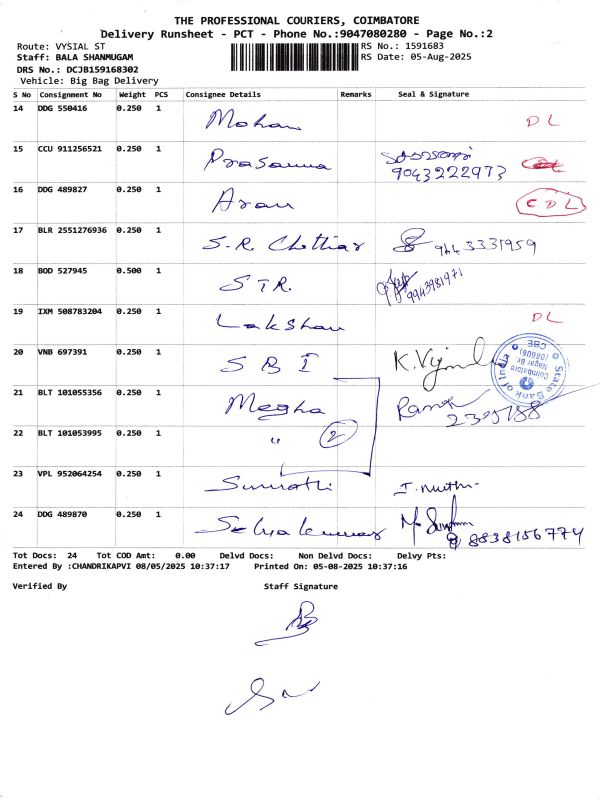 THE PROFESSIONAL COURIERS, COIMBATORE
Delivery Runsheet - PCT - Phone No.:9047080280 - Page No.:2
Route: VYSIAL ST RS No.: 1591683
Staff: BALA SHANMUGAM RS Date: 05-Aug-2025
DRS No.: DCJB159168302
Vehicle: Big Bag Delivery
S No Consignment No Weight PCS Consignee Details Remarks Seal & Signature
14 DDG 550416 0.250 1 Mohan DL
15 CCU 911256521 0.250 1 Prasanna 9043222973
16 DDG 489827 0.250 1 CDL
17 BLR 2551276936 0.250 1 S.R. Chettiar 9443331959
18 BOD 527945 0.500 1 STR. 9943981971
19 IXM 508783204 0.250 1 Lakshan DL
20 VNB 697391 0.250 1 SBI State Bank of India Coimbatore Nagar Br. CBE
21 BLT 101055356 0.250 1 Megha
22 BLT 101053995 0.250 1 " 2
23 VPL 952064254 0.250 1
24 DDG 489870 0.250 1 8838156774
Tot Docs: 24 Tot COD Amt: 0.00 Delvd Docs: Non Delvd Docs: Delvy Pts:
Entered By :CHANDRIKAPVI 08/05/2025 10:37:17 Printed On: 05-08-2025 10:37:16
Verified By Staff Signature